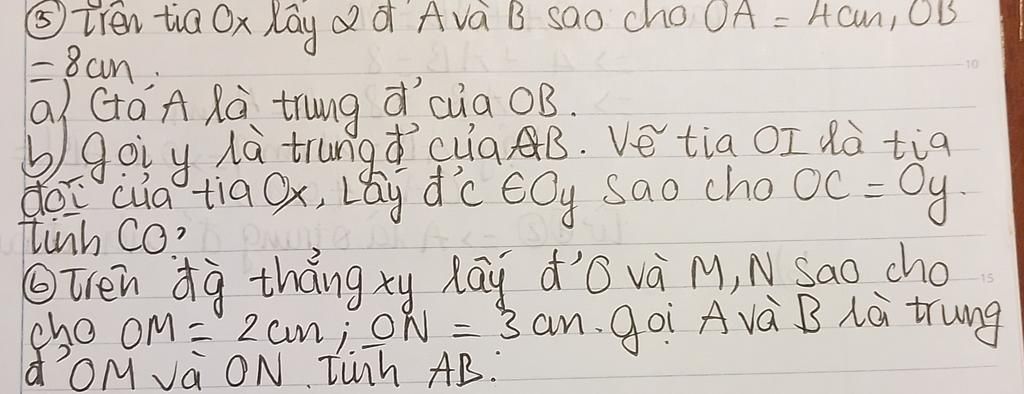 ⑤ Trên tia Ox lấy 2 đ' A và B sao cho OA = 4cm, OB
= 8cm.
a) Ctá A là trung đ' của OB.
b) gọi y là trung đ' của AB. Vẽ tia OI là tia
đối của tia Ox, Lấy đ'c ∈ Oy sao cho OC = Oy.
Tính CO?
⑥ Trên đg̀ thẳng xy lấy đ' O và M, N sao cho
cho OM = 2cm; ON = 3cm. gọi A và B là trung
đ' OM và ON. Tính AB.